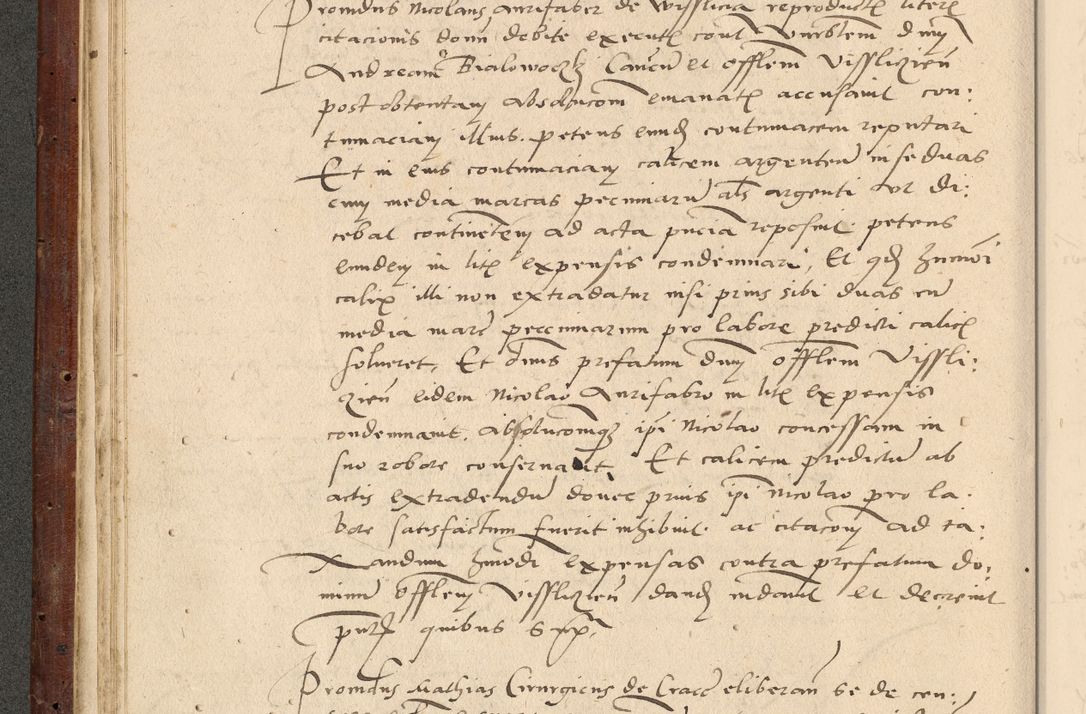 Promdus Nicolaus Aurifaber de Wisslicia reproductis literis
citacionis domi debite executis contra Venerabilem dnum
Andream Bialowoczki Canonicum et offlem Vissliczien
post obtentam absolucom emanatis accusavit con:
tumaciam illius. petens eundem contumacem reputari
Et in eius contumaciam calicem argenteum in se duas
cum media marcas pecuniarum als argenti vt di:
cebat continentem ad acta pncia reposuit. petens
eundem in litis expensis condemnari, Et qd hmoi
calix illi non extradatur nisi prius sibi duas cum
media marc pecuniarum pro labore predicti calicis
solveret, Et dnus prefatum dnum offlem Vissli:
zien eidem Nicolao Aurifabro in litis expensis
condemnavit. absolucomqz ipi Nicolao concessam in
suo robore conservavit, Et calicem predictum ab
actis extradendum donec prius ipi Nicolao pro la.
bore satisfactum fuerit inhibuit. ac citacom ad ta:
xandum hmodi expensas contra prefatum do:
minum offlem Vissliczien dandam mandavit et decrevit
pntibus quibus supra
Promdus Mathias Cirurgicus de Cracc eliberans se de cen: